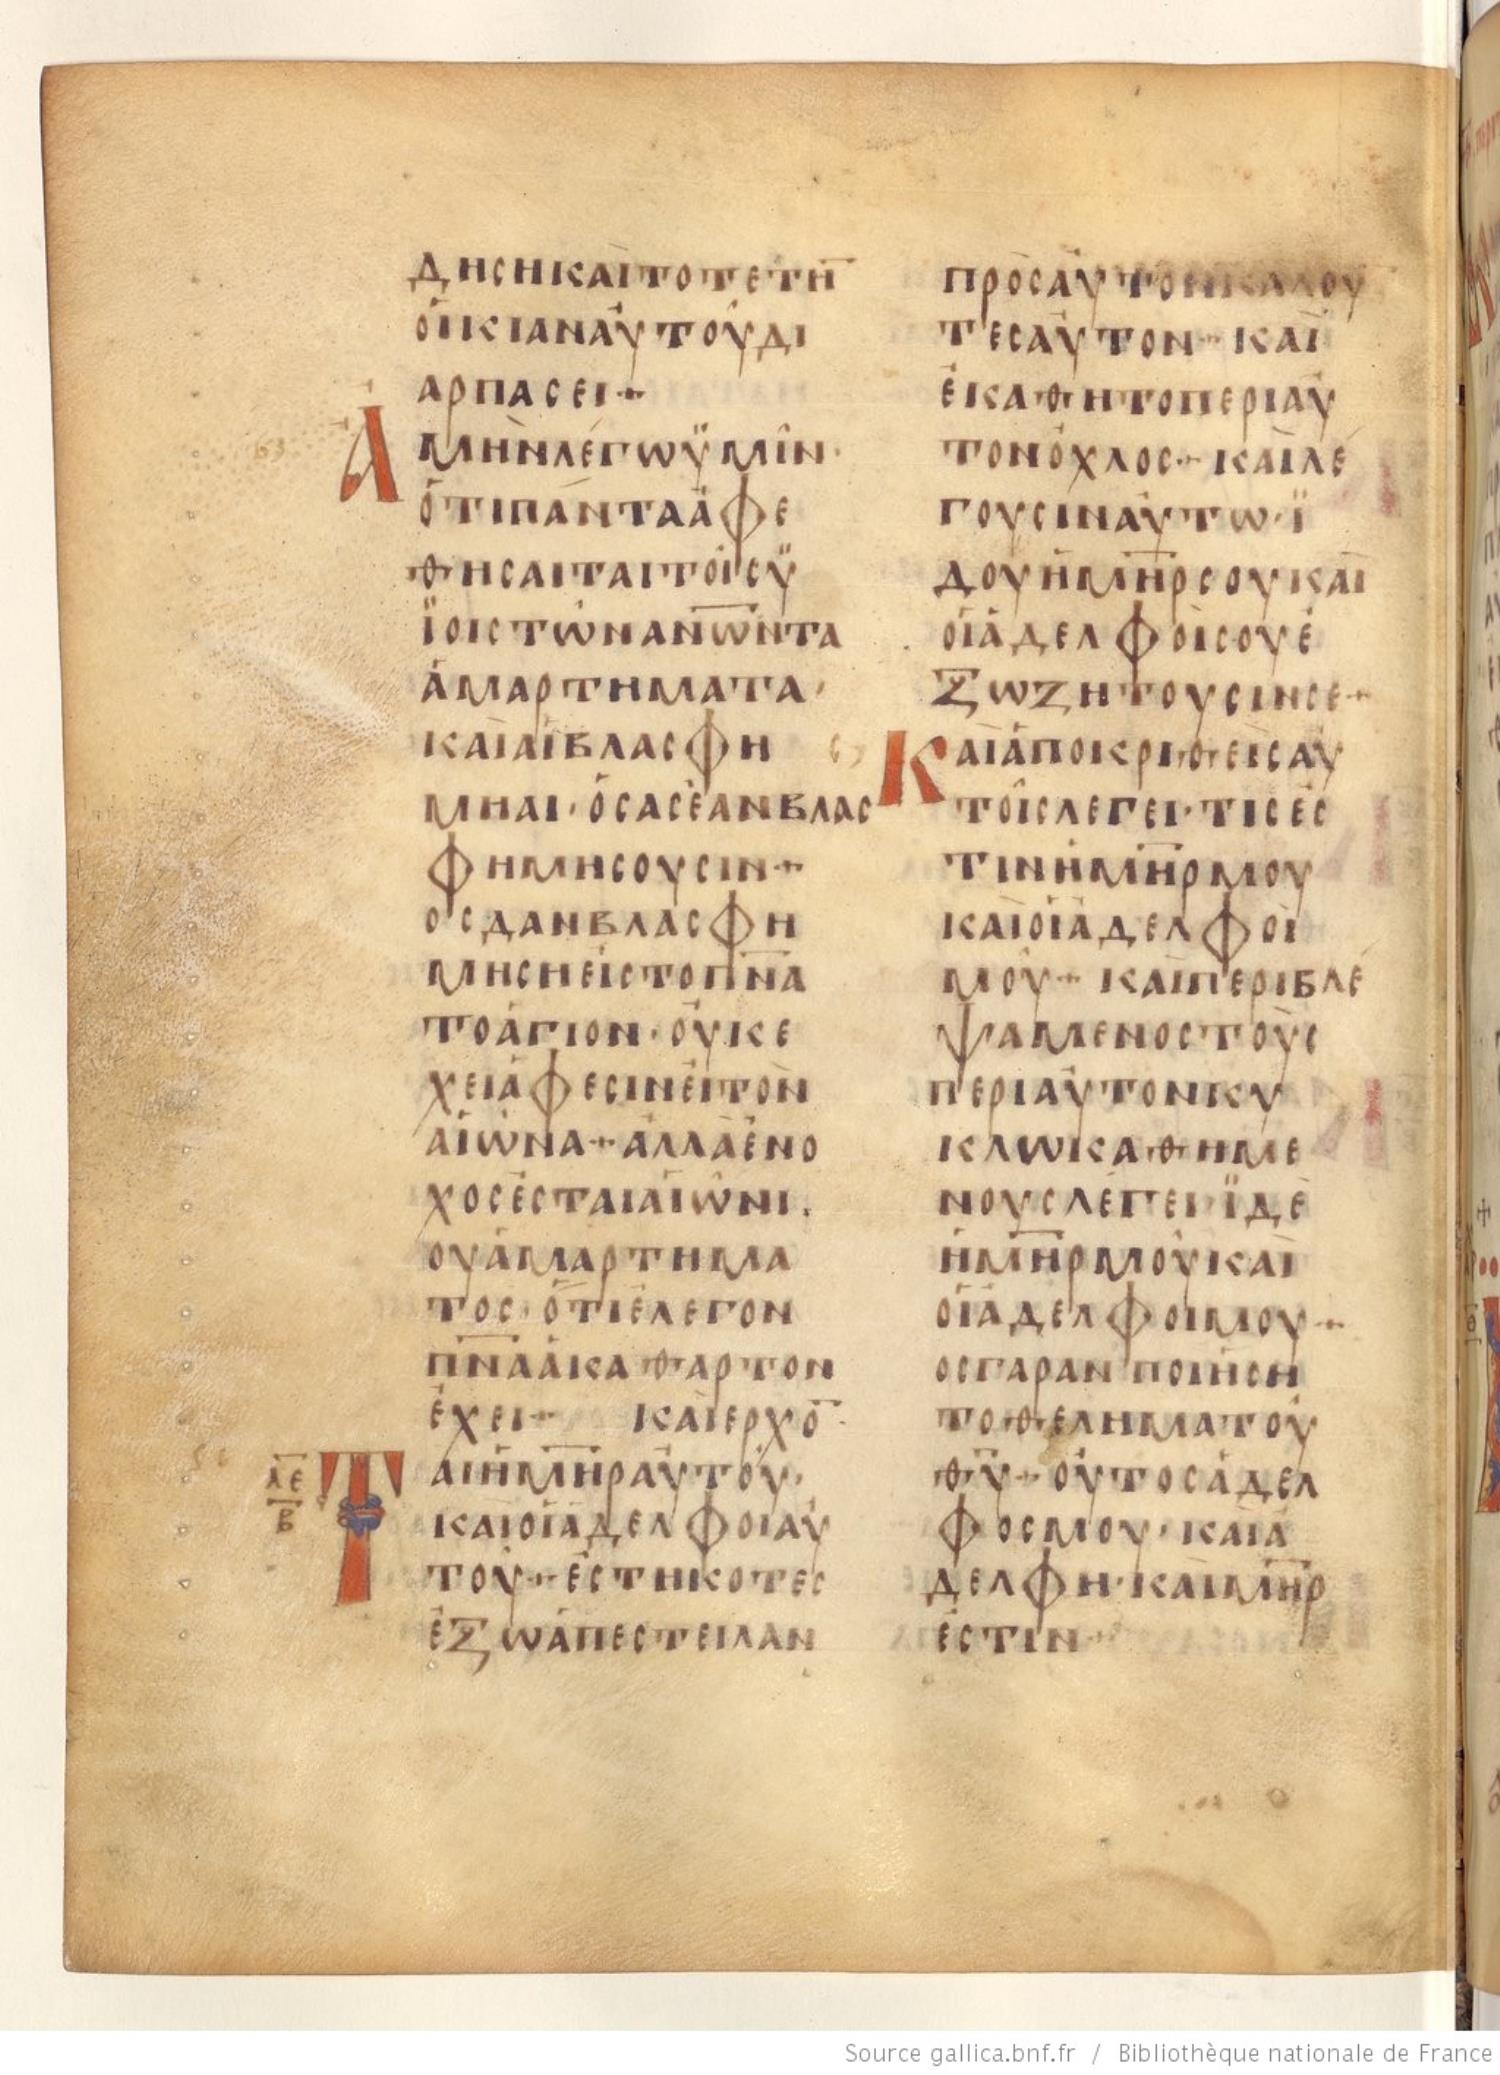 ΔΗCΗΚΑΙΤΟΤΕΤΗ̅
ΟΙΚΙΑΝΑΥΤΟΥΔΙ
ΑΡΠΑCΕΙ+
ΑΜΗΝΛΕΓΩΫΜΙΝ·
ΟΤΙΠΑΝΤΑΑΦΕ
ΘΗCΑΙΤΑΙΤΟΙCΫ
ΪΟΙCΤΩΝΑΝ̅Ω̅ΝΤΑ
ΑΜΑΡΤΗΜΑΤΑ·
ΚΑΙΑΙΒΛΑCΦΗ
ΜΗΑΙ·ΟCΑCΕΑΝΒΛΑC
ΦΗΜΗCΟΥCΙΝ+
ΟCΔΑΝΒΛΑCΦΗ
ΜΗCΗΕΙCΤΟΠ̅Ν̅Α
ΤΟΑΓΙΟΝ·ΟΥΚΕ
ΧΕΙΑΦΕCΙΝΕΙΤΟΝ
ΑΙΩΝΑ+ΑΛΛΑΕΝΟ
ΧΟCΕCΤΑΙΑΙΩΝΙ.
ΟΥΑΜΑΡΤΗΜΑ
ΤΟC·ΟΤΙΕΛΕΓΟΝ
Π̅Ν̅ΑΑΚΑΘΑΡΤΟΝ
ΕΧΕΙ+ ΚΑΙΕΡΧΟ̅
Λ̅Ε̅
Β
ΤΑΙΗΜ̅Η̅ΡΑΥΤΟΥ·
ΚΑΙΟΙΑΔΕΛΦΟΙΑΥ
ΤΟΥ+ΕCΤΗΚΟΤΕC
ΕΞΩΑΠΕCΤΕΙΛΑΝ
ΠΡΟCΑΥΤΟΝΚΑΛΟΥ̅
ΤΕCΑΥΤΟΝ+ΚΑΙ
ΕΚΑΘΗΤΟΠΕΡΙΑΥ
ΤΟΝΟΧΛΟC+ΚΑΙΛΕ
ΓΟΥCΙΝΑΥΤΩ·Ϊ
ΔΟΥΗΜ̅Η̅ΡCΟΥΚΑΙ
ΟΙΑΔΕΛΦΟΙCΟΥΕ
ΞΩΖΗΤΟΥCΙΝCΕ+
ΚΑΙΑΠΟΚΡΙΘΕΙCΑΥ
ΤΟΙCΛΕΓΕΙ·ΤΙCΕC
ΤΙΝΗΜ̅Η̅ΡΜΟΥ
ΚΑΙΟΙΑΔΕΛΦΟΙ
ΜΟΥ+ΚΑΙΠΕΡΙΒΛΕ
ΨΑΜΕΝΟCΤΟΥC
ΠΕΡΙΑΥΤΟΝΚΥ
ΚΛΩΚΑΘΗΜΕ
ΝΟΥCΛΕΓΕΙ·ΪΔΕ
ΗΜ̅Η̅ΡΜΟΥΚΑΙ
ΟΙΑΔΕΛΦΟΙΜΟΥ+
ΟCΓΑΡΑΝΠΟΙΗCΗ
ΤΟΘΕΛΗΜΑΤΟΥ
Θ̅Υ̅+ΟΥΤΟCΑΔΕΛ
ΦΟCΜΟΥ·ΚΑΙΑ
ΔΕΛΦΗ·ΚΑΙΜ̅Η̅Ρ
ΕCΤΙΝ+
Source gallica.bnf.fr / Bibliothèque nationale de France